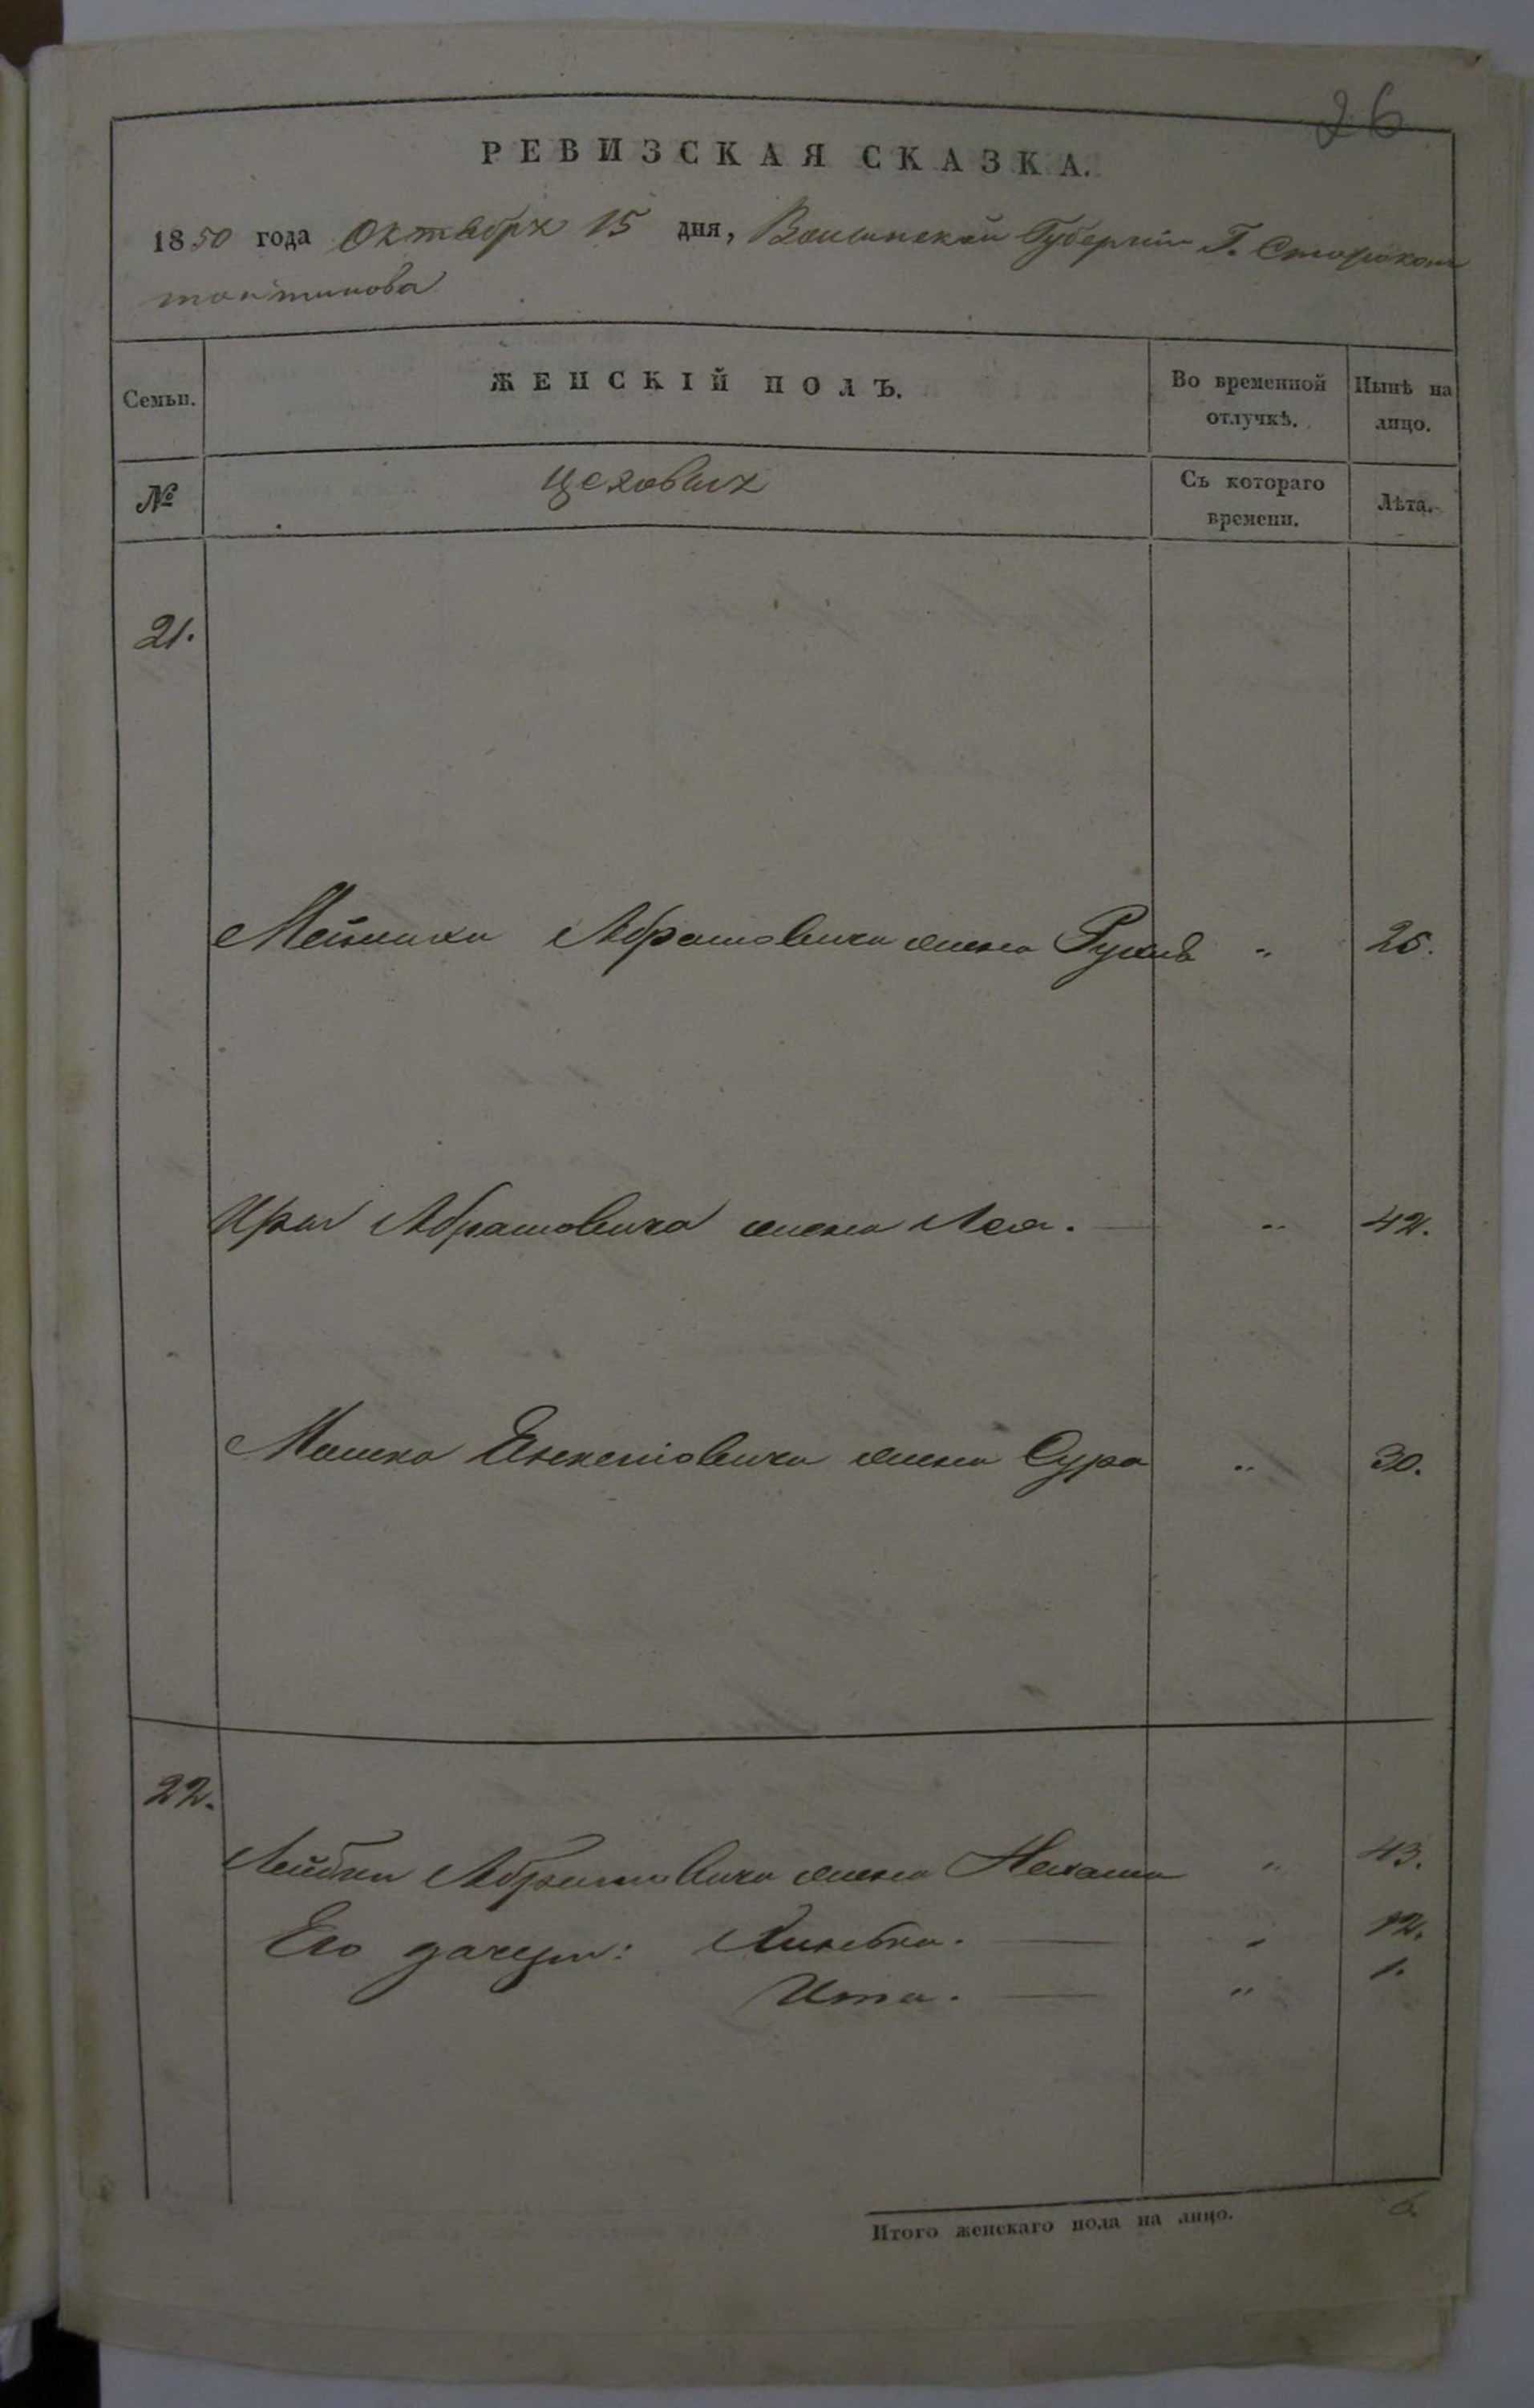 26
РЕВИЗСКАЯ СКАЗКА.
1850 года Октября 15 дня, Волынской Губернiи Г. Старокон
стантинова
Семьи. ЖЕНСКІЙ ПОЛЪ. Во временной отлучкѣ. Нынѣ на лицо.
№ цеховыхъ Съ котораго времени. Лѣта.
21.
Абрамовича жена Рухля " 25.
Абрамовича жена Лея. — " 42.
Мошка жена Сура " 30.
22.
Лейбы Абрамовича жена Нехама " 43.
Его дочери: — " 12.
Ита. — " 1.
Итого женскаго пола на лицо. 6.